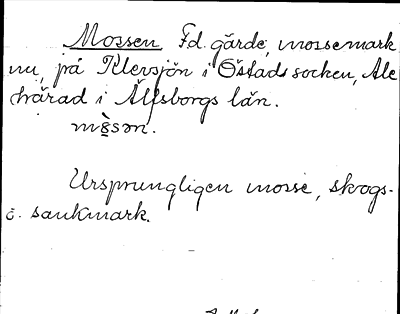 Mossen Fd. gärde, mossemark
nu, på Klevsjön i Östads socken, Ale
härad i Älfsborgs län.
Ursprungligen mosse, skogs-
o. sankmark.